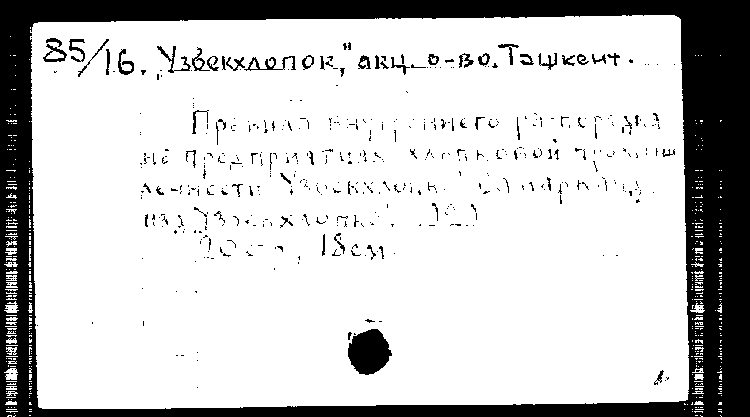 85/16. "Узбекхлопок," акц. о-во. Ташкент.
Правила внутреннего распорядка
на предприятиях хлопковой промыш
ленности Узбекхлопка" Самарканд.
изд Узбекхлопка".
20 стр, 18 см.